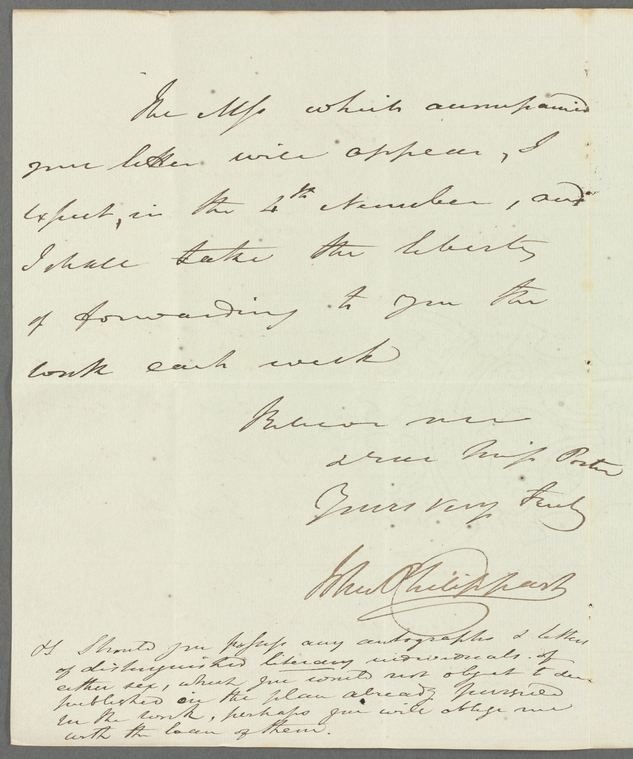 The Mss which accompanied
your letter will appear, I
expect, in the 4th Number, and
I shall take the liberty
of forwarding to you the
work each week
Believe me
dear Miss Porter
Yours very truly
John Philippart
Should you possess any autographs & letters
of distinguished literary individuals of
either sex, which you would not object to see
published on the plan already pursued
in the work, perhaps you will oblige me
with the loan of them.